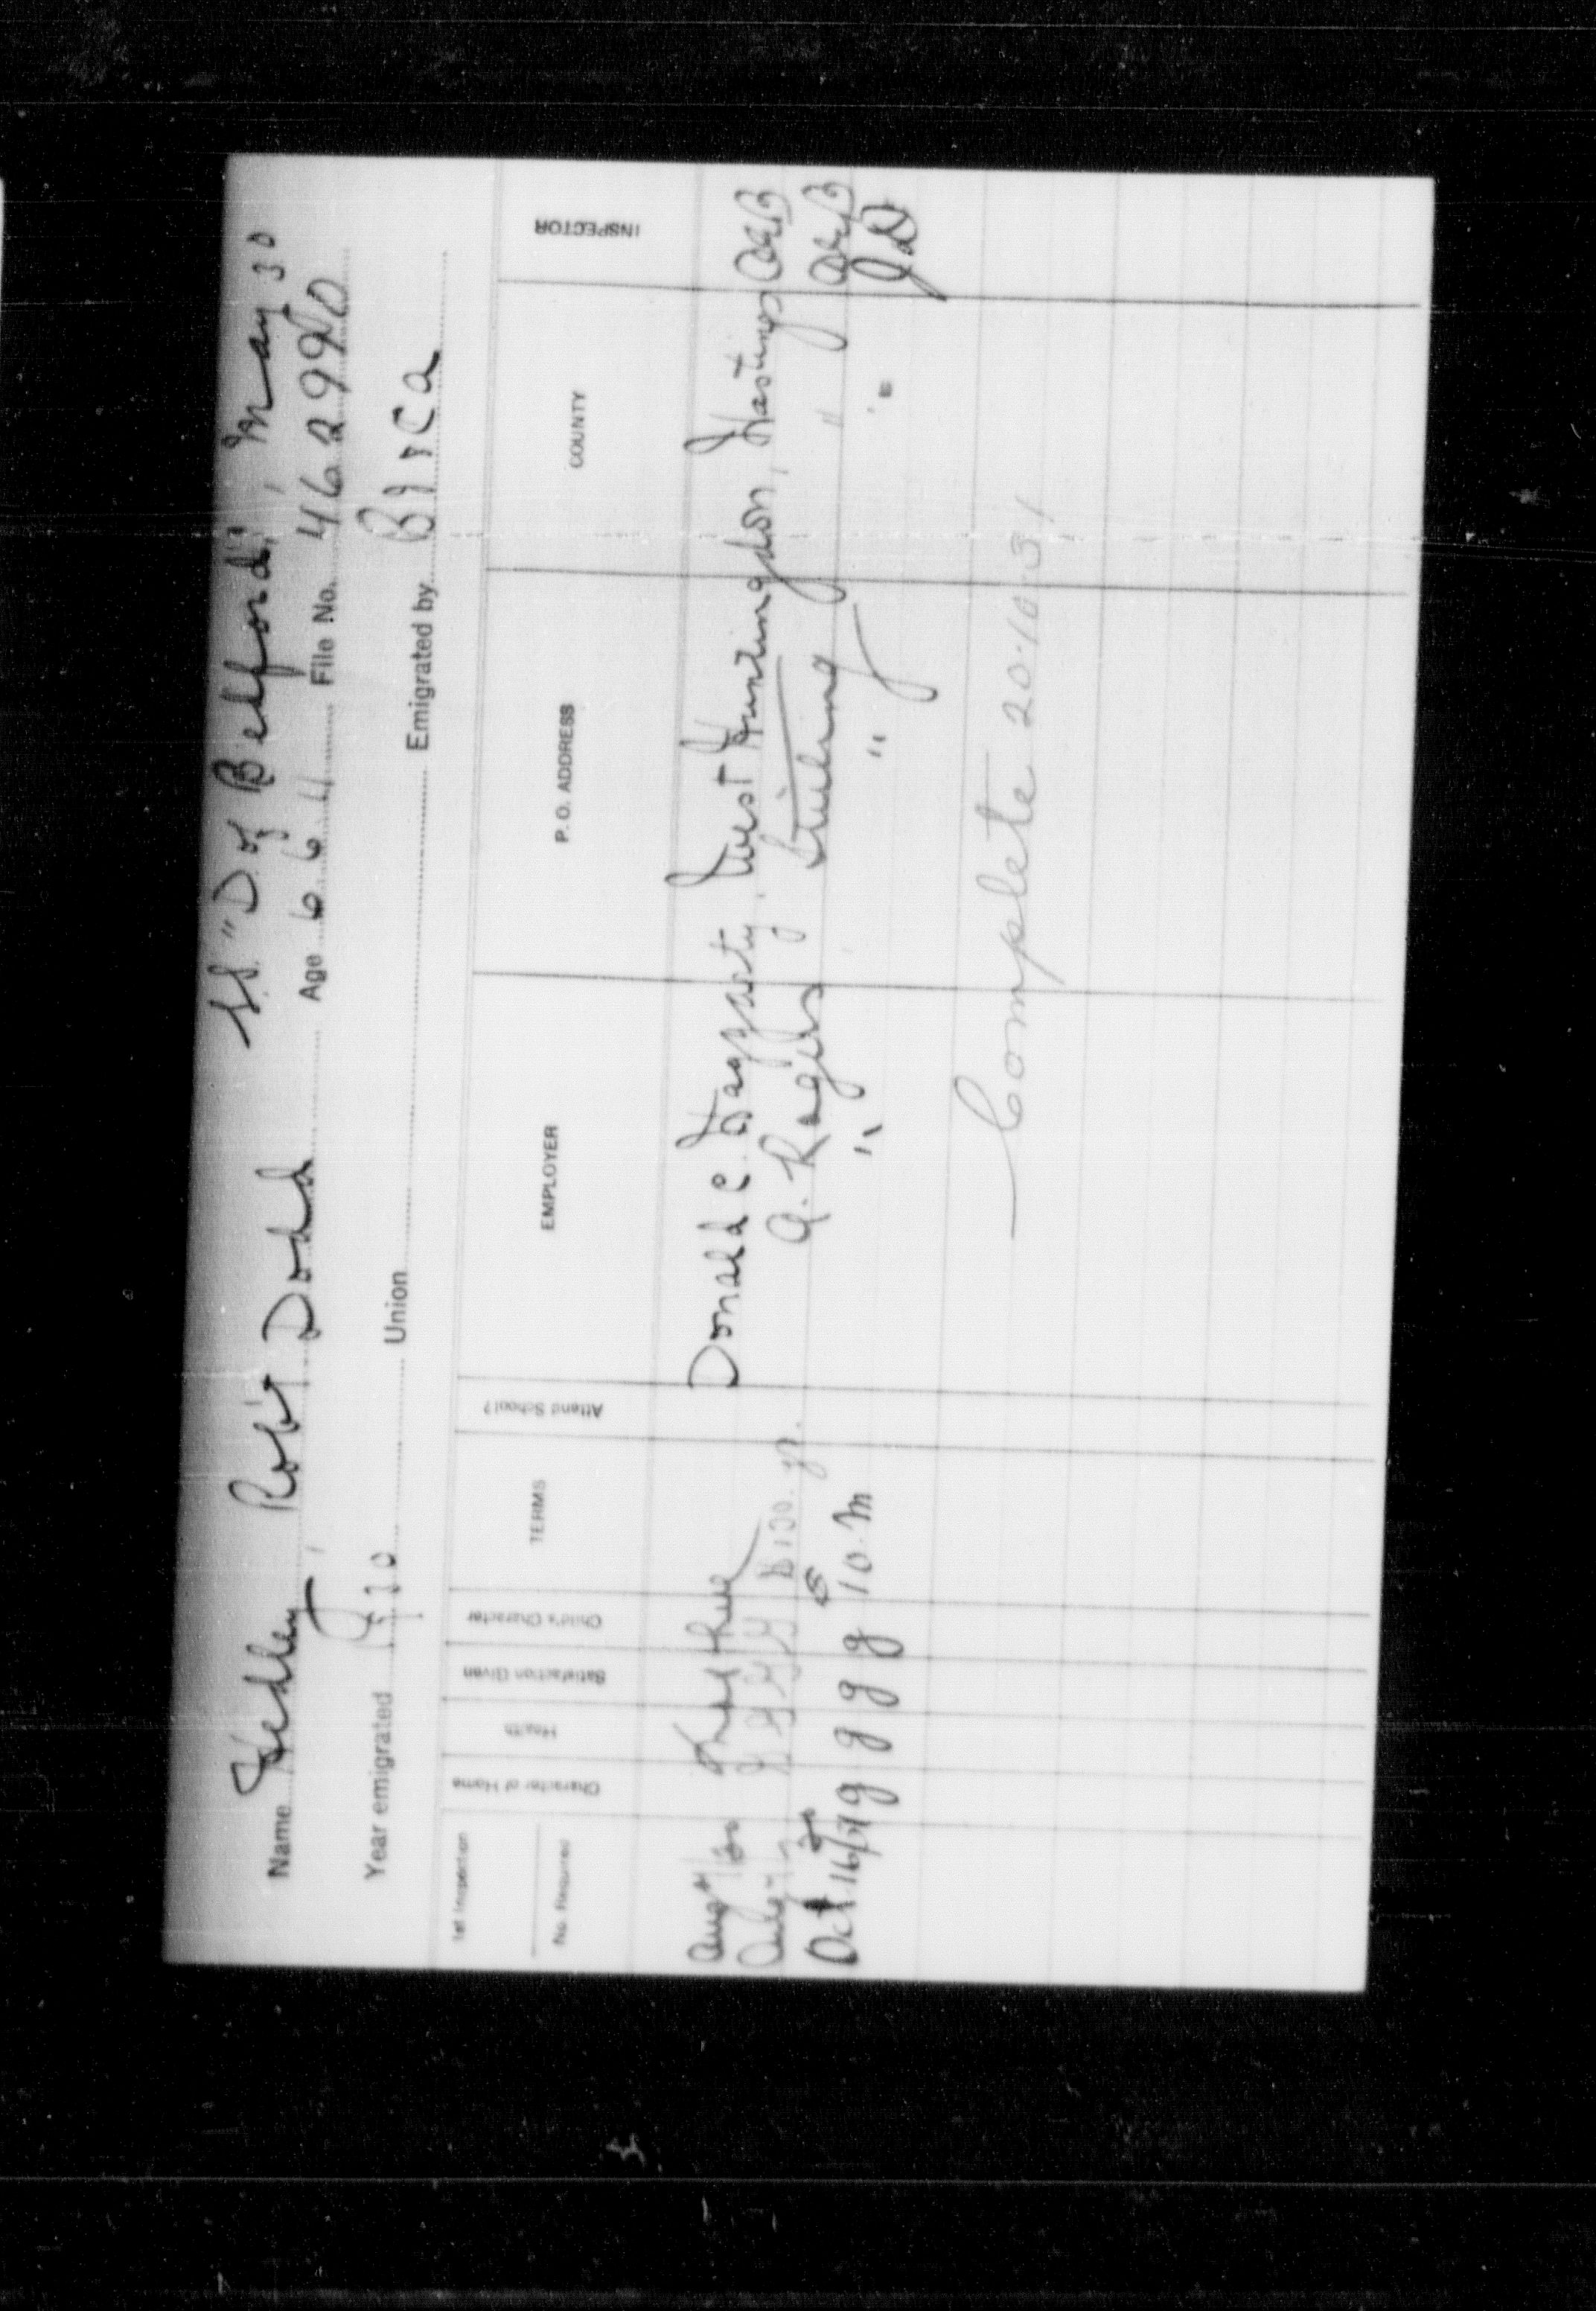 Name Hedley, Robt Dodd S.S. "D of Bedford", May 30
Age File No. 462990
Year emigrated Union Emigrated by B I & C A
1st Inspection
No. Required
Character of Home Health Satisfaction Given Child's Character TERMS Attend School? EMPLOYER P. O. ADDRESS COUNTY INSPECTOR
Aug Donald C Haggarty, West Huntingdon, Hastings
g g g g $100. yr. A. Rogers Stirling "
Oct 16/31 g g g g 10. m " " "
Complete 20.10.31